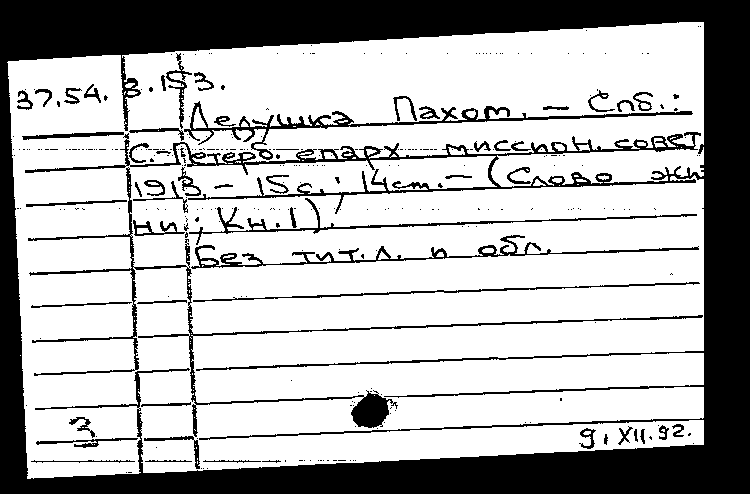 37.54.8.153.
Дедушка Пахом. – Спб.:
С.-Петерб. епарх. миссион. совет,
1913. – 15 с.; 14 cm. – (Слово жиз
ни; Кн. 1).
Без тит. л. и обл.
3
9.XII.92.